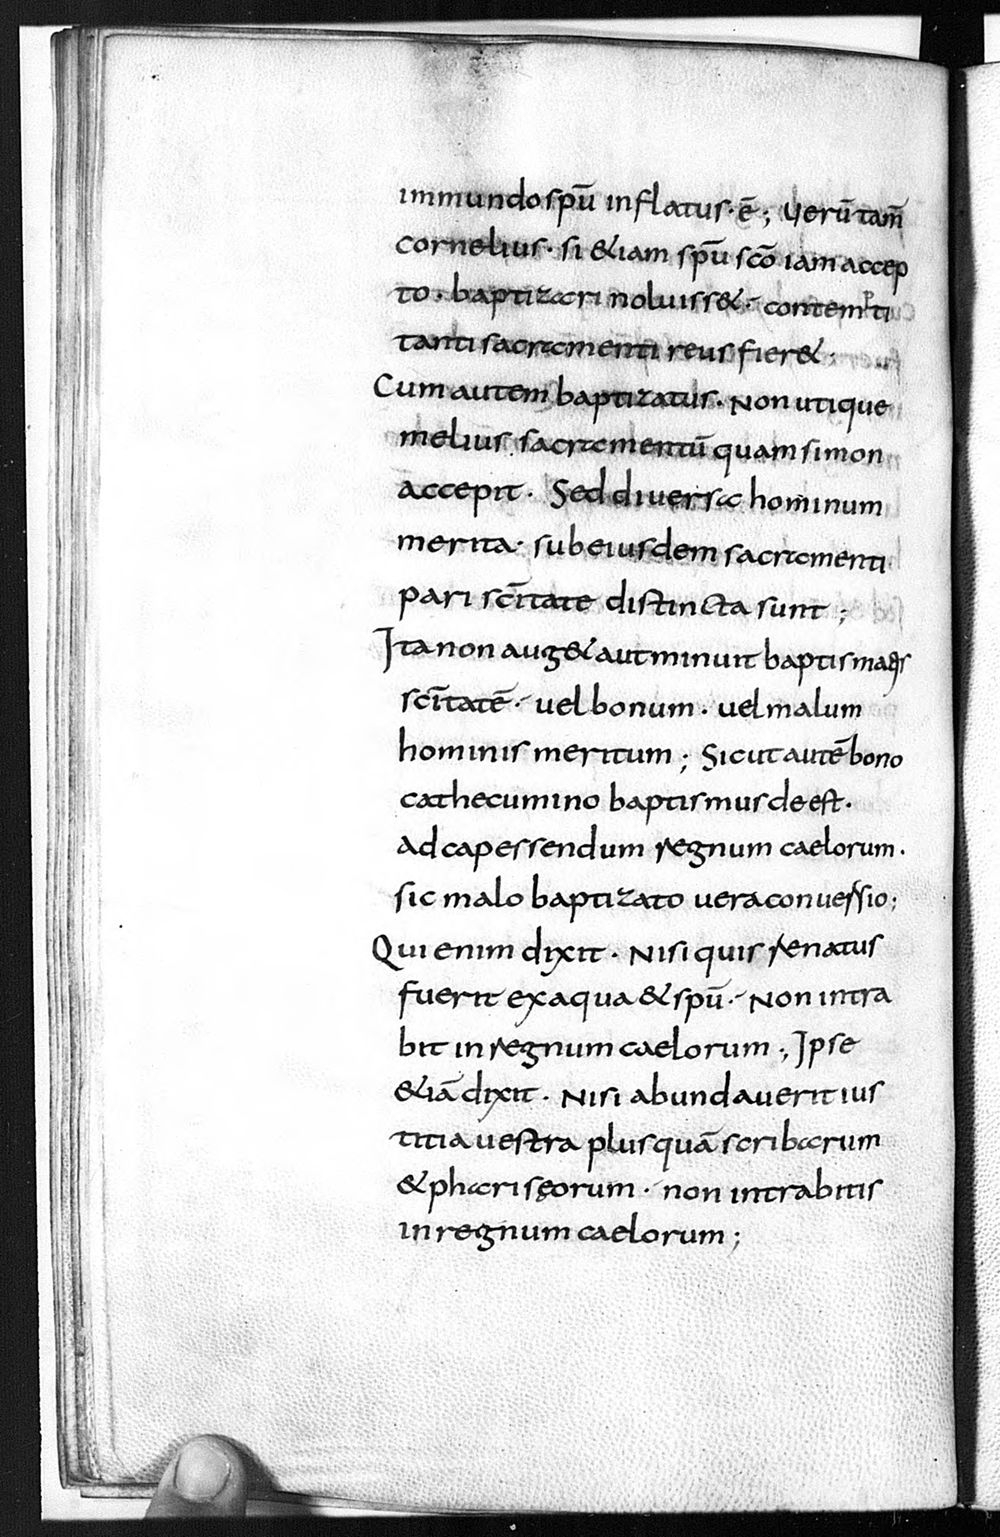 immundo spū inflatus · ē ; Uerū tam̄
cornelius · si &iam spū scō iam accep
to · baptizari noluiss& · contempti
tanti sacramenti reus fier& ·
Cum autem baptizatus · Non utique
melius sacramentū quam simon
accepit · Sed diuersa hominum
merita · sub eiusdem sacramenti
pari scītate distincta sunt ;
Ita non aug& aut minuit baptismatis
scītatē · uel bonum · uel malum
hominis meritum ; Sicut autē bono
cathecumino baptismus deest ·
ad capessendum regnum caelorum ·
sic malo baptizato uera conuersio ;
Qui enim dixit · Nisi quis renatus
fuerit ex aqua & spū · Non intra
bit in regnum caelorum ; Ipse
&iā dixit · Nisi abundauerit ius
titia uestra plus quā scribarum
& phariseorum · non intrabitis
in regnum caelorum ;